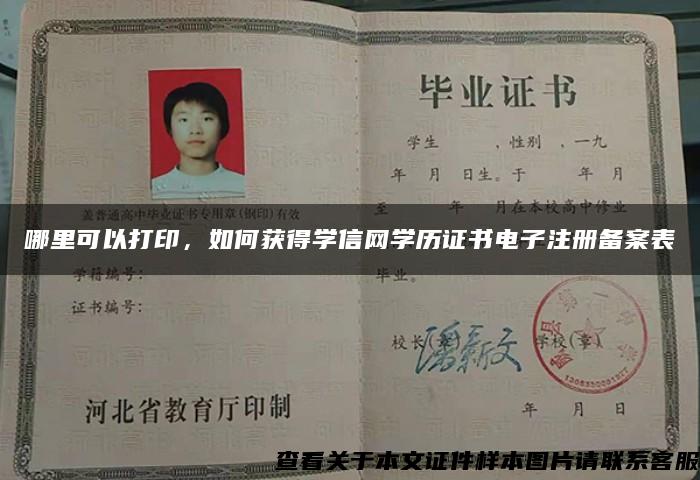 盖普通高中毕业证书专用章(钢印)有效
学籍编号:
证书编号:
河北省教育厅印制
毕业证书
学生 ,性别 ,一九
年 月 日生。于 年 月
至 年 月在本校高中修业
毕业。
校长(章) 学校(章)
年 月 日
哪里可以打印，如何获得学信网学历证书电子注册备案表
查看关于本文证件样本图片请联系客服